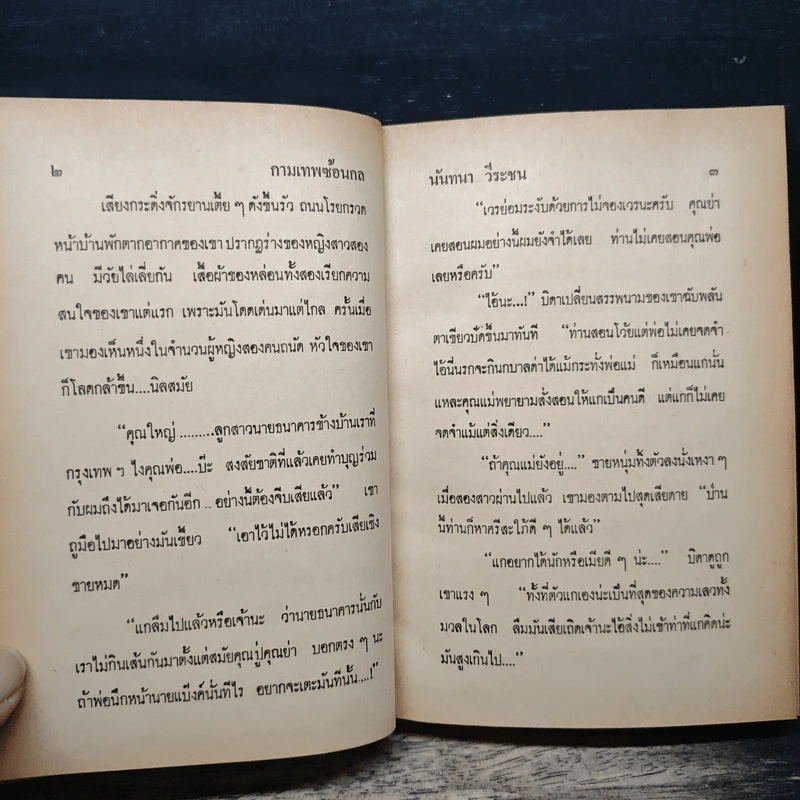 ๒ กามเทพซ้อนกล
เสียงกระดิ่งจักรยานเตี๋ย ๆ ดังขึ้นรัว ถนนโรยกรวด
หน้าบ้านพักตากอากาศของเขา ปรากฏร่างของหญิงสาวสอง
คน มีวัยไล่เลี่ยกัน เสื้อผ้าของหล่อนทั้งสองเรียกความ
สนใจของเขาแต่แรก เพราะมันโดดเด่นมาแต่ไกล ครั้นเมื่อ
เขามองเห็นหนึ่งในจำนวนผู้หญิงสองคนถนัด หัวใจของเขา
ก็โลดกล้าขึ้น....นิลสมัย
“คุณใหญ่.........ลูกสาวนายธนาคารข้างบ้านเราที่
กรุงเทพ ฯ ไงคุณพ่อ....บ๊ะ สงสัยชาติที่แล้วเคยทำบุญร่วม
กับผมถึงได้มาเจอกันอีก .. อย่างนี้ต้องจีบเสียแล้ว” เขา
ถูมือไปมาอย่างมันเขี้ยว “เอาไว้ไม่ได้หรอกครับเสียเชิง
ชายหมด”
“แกลืมไปแล้วหรือเจ้านะ ว่านายธนาคารนั่นกับ
เราไม่กินเส้นกันมาตั้งแต่สมัยคุณปู่คุณย่า บอกตรง ๆ นะ
ถ้าพ่อนึกหน้านายแบ๊งค์นั่นทีไร อยากจะเตะมันทีนั้น....!”
นันทนา วีระชน ๓
“เวรย่อมระงับด้วยการไม่จองเวรนะครับ คุณย่า
เคยสอนผมอย่างนี้ผมยังจำได้เลย ท่านไม่เคยสอนคุณพ่อ
เลยหรือครับ”
“ไอ้นะ...!” บิดาเปลี่ยนสรรพนามของเขาฉับพลัน
ตาเขียวปั้ดขึ้นมาทันที “ท่านสอนโว้ยแต่พ่อไม่เคยจดจำ
ไอ้นี่นรกจะกินกบาลด่าได้แม้กระทั่งพ่อแม่ ก็เหมือนแกนั่น
แหละคุณแม่พยายามสั่งสอนให้แกเป็นคนดี แต่แกก็ไม่เคย
จดจำแม้แต่สิ่งเดียว....”
“ถ้าคุณแม่ยังอยู่....” ชายหนุ่มทิ้งตัวลงนั่งเหงา ๆ
เมื่อสองสาวผ่านไปแล้ว เขามองตามไปสุดเสียดาย “ป่าน
นี้ท่านก็หาศรีสะใภ้ดี ๆ ได้แล้ว”
“แกอยากได้นักหรือเมียดี ๆ น่ะ....” บิดาดูถูก
เขาแรง ๆ “ทั้งที่ตัวแกเองน่ะเป็นที่สุดของความเลวทั้ง
มวลในโลก ลืมมันเสียเถิดเจ้านะไอ้สิ่งไม่เข้าท่าที่แกคิดน่ะ
มันสูงเกินไป....”